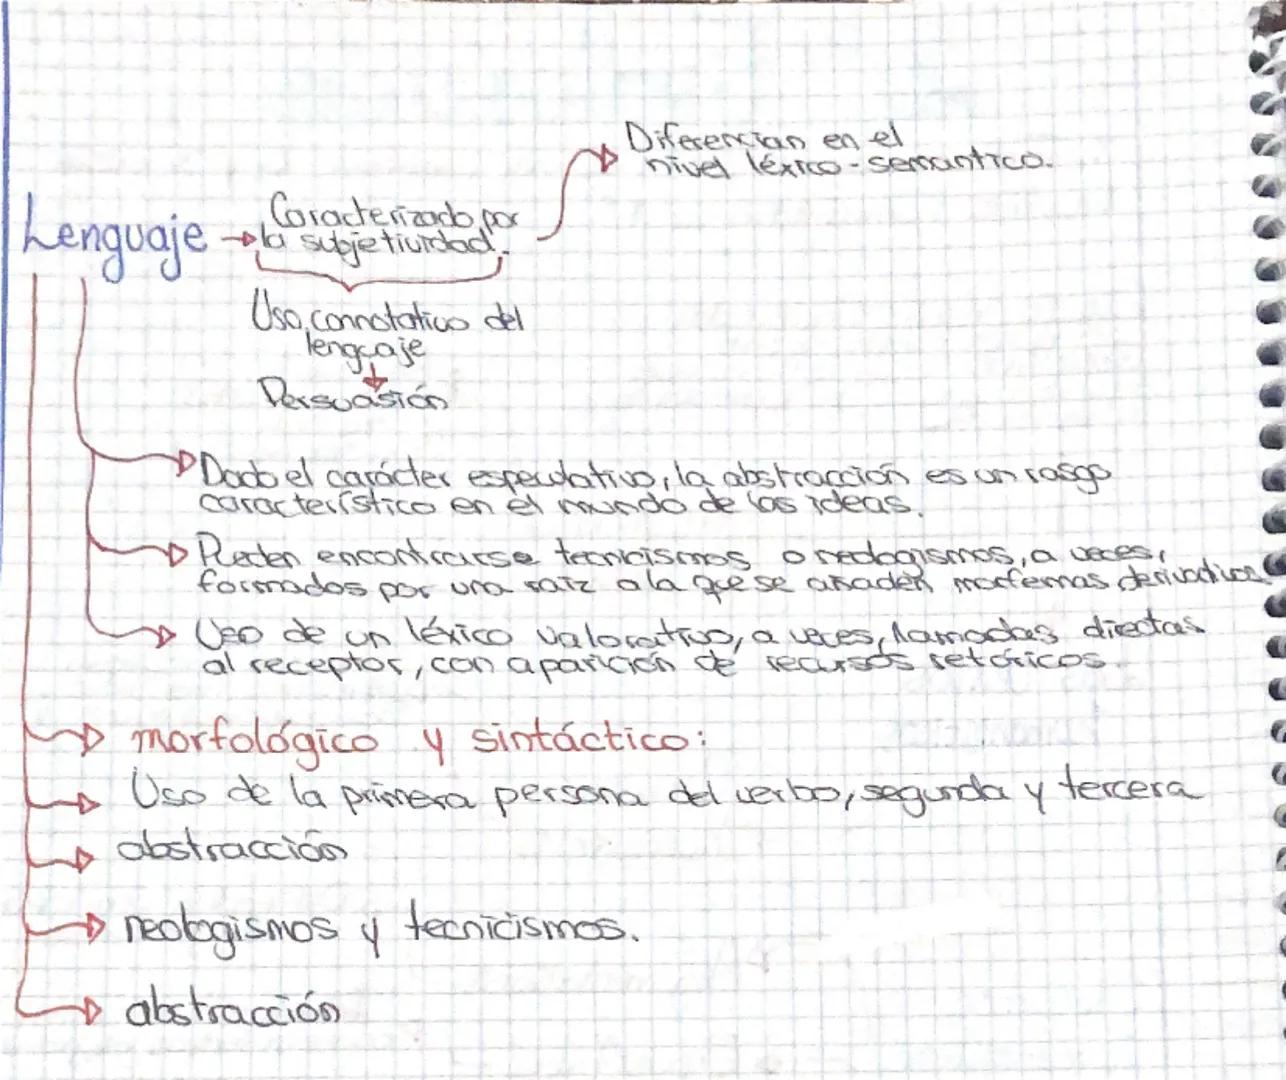 Diferencian en el
nivel léxico-semantico.
Lenguaje
Caracterizado por
la subjetividad.
Uso connotativo del
lenguaje
Persuasión
Dado el carácter especulativo, la abstracción es un rasgo
característico en el mundo de las ideas.
Pueden encontrarse tecnicismos o neologismos, a veces,
formados por una raíz a la que se añaden morfemas derivativos
Uso de un léxico valorativo, a veces, llamadas directas
al receptor, con aparición de recursos retóricos.
morfológico y sintáctico:
Uso de la primera persona del verbo, segunda y tercera
abstracción
neologismos y tecnicismos.
abstracción